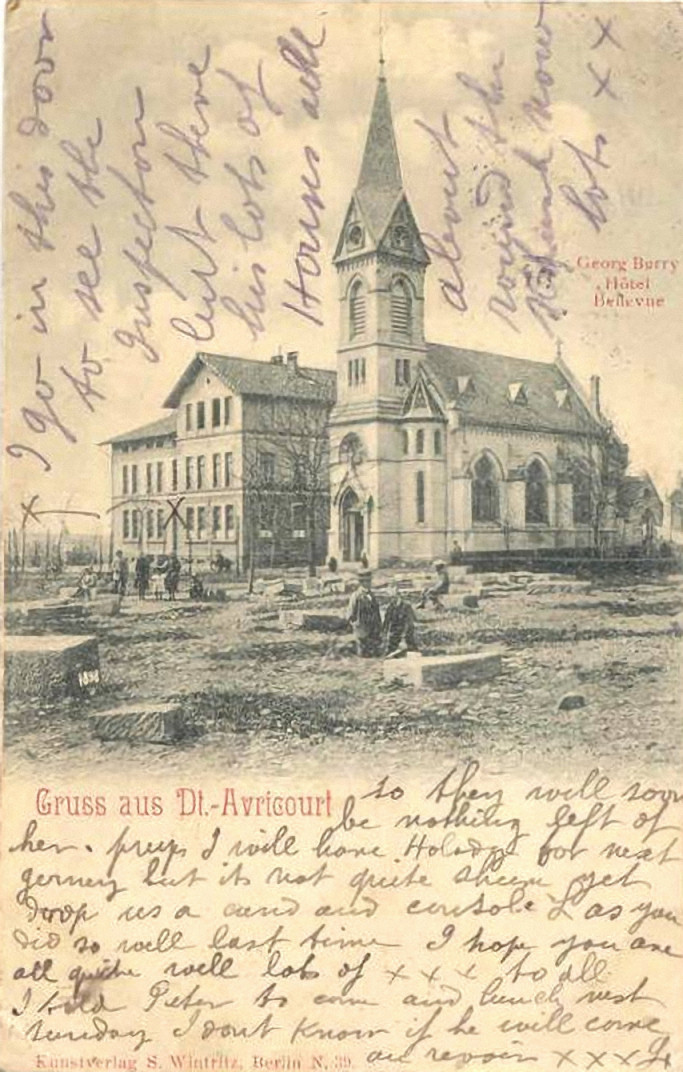 x I go in this door
to see the
Inspector
but there
his lots of
Horns all
about
round the
now
lots x x
Georg Burry
Hôtel
Bellevue
x
1898
Gruss aus Dt.-Avricourt
so they will soon
be nothing left of
her. I will have for next
but its not quite yet
Drop us a card and L as you
did so well last time I hope you are
all quite well lots of x x x to all
I told Peter to come and lunch next
I dont know if he will come
au revoir x x x L
Kunstverlag S. Wintritz, Berlin N. 39.